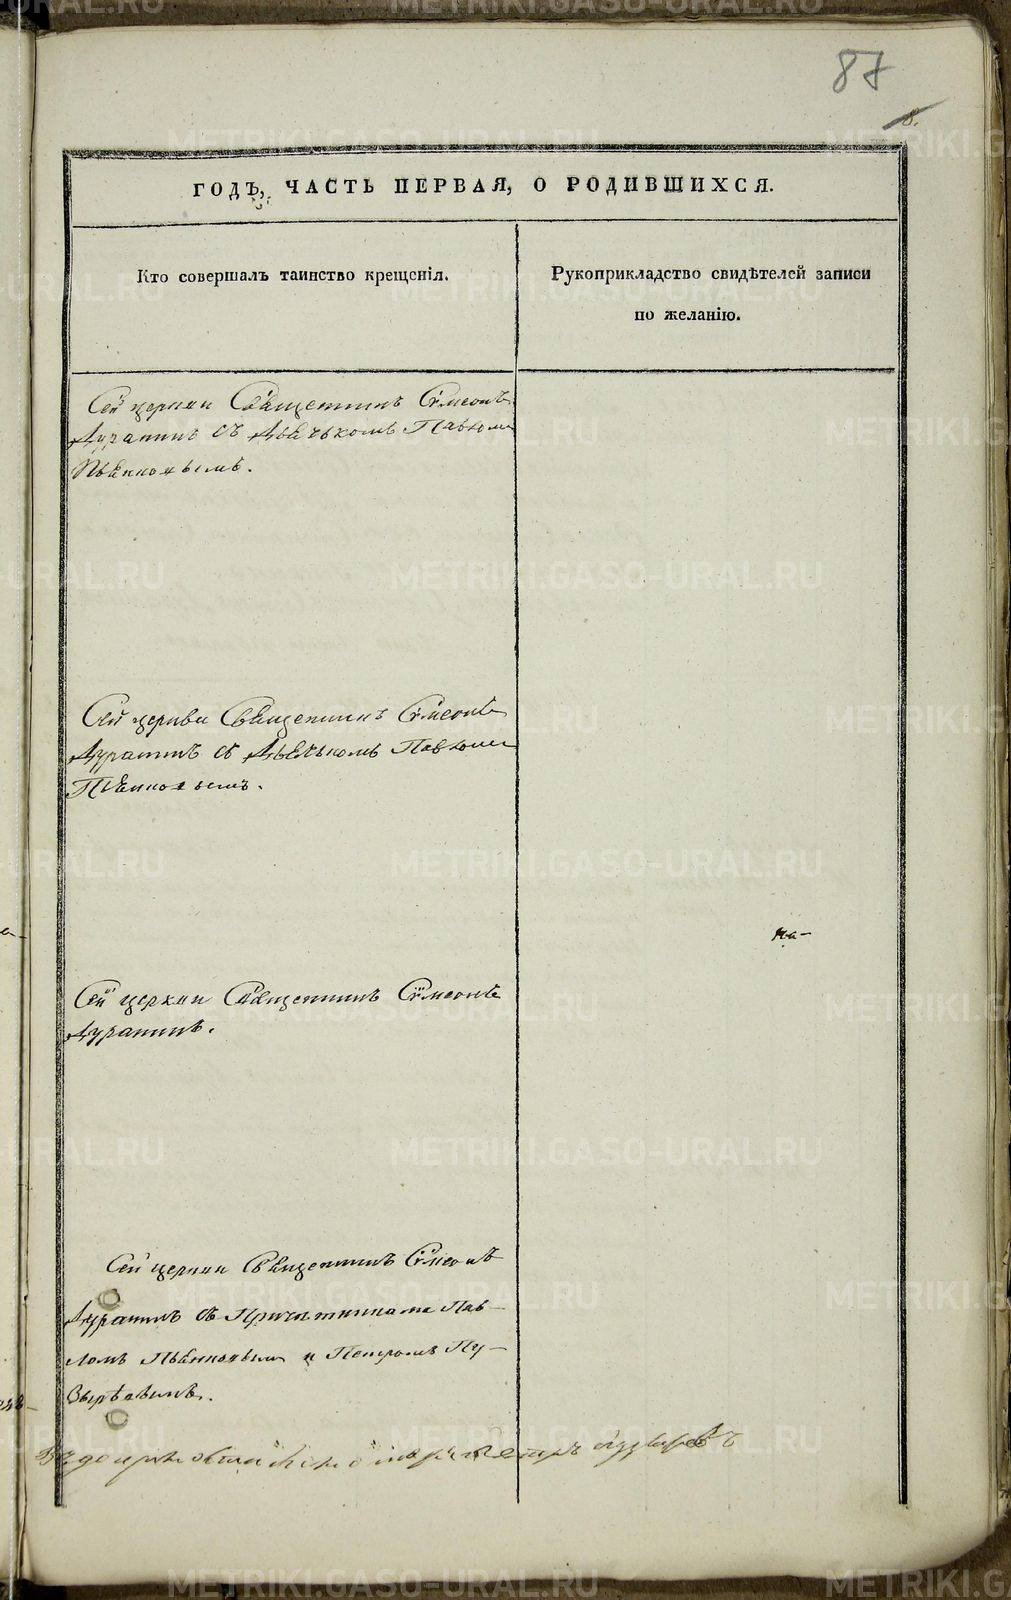 87
8.
ГОДЪ, ЧАСТЬ ПЕРВАЯ, О РОДИВШИХСЯ.
Кто совершалъ таинство крещенія.
Рукоприкладство свидѣтелей записи
по желанію.
Сей церкви Священникъ Сѵмеонъ
съ Дьячькомъ Павломъ
Пѣнковымъ.
Сей церкви Священникъ Сѵмеонъ
съ Дьячькомъ Павломъ
Пѣнковымъ.
на-
Сей церкви Священникъ Сѵмеонъ
Сей церкви Священникъ Сѵмеонъ
съ Причетниками Пав-
ломъ Пѣнковымъ и Петромъ Пу-
зырѣвымъ.
METRIKI.GASO-URAL.RU